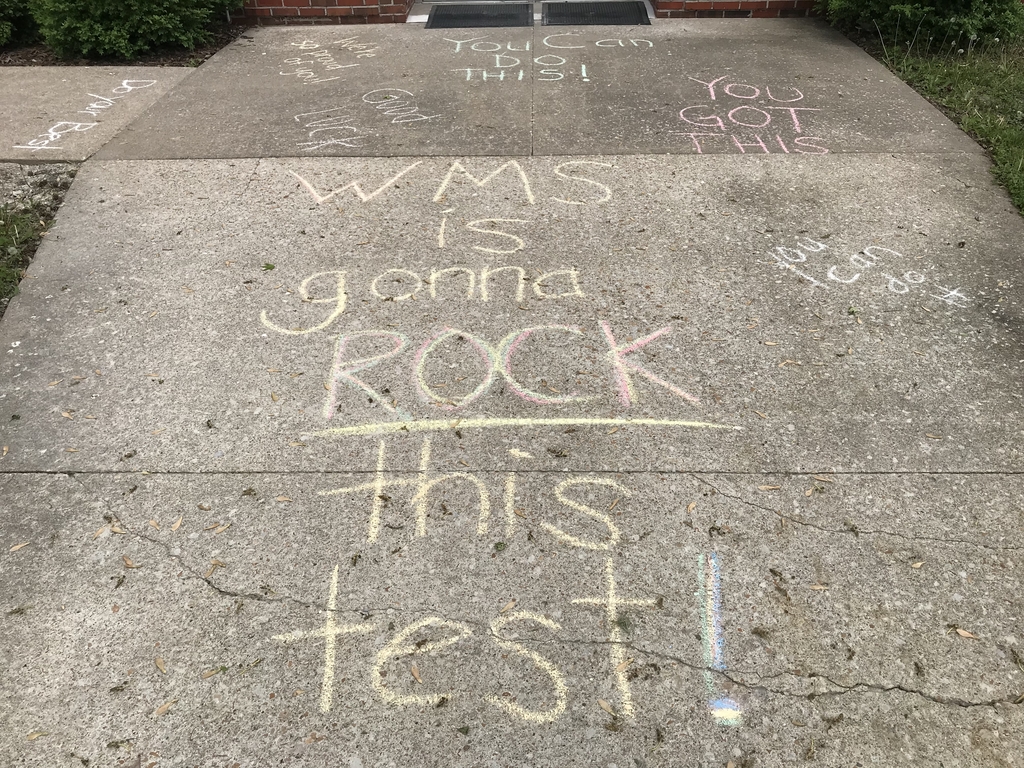 We're
so proud
of you!
You Can
DO
THIS!
Do your Best
Good
LUCK
YOU
GOT
THIS
WMS
is
gonna
ROCK
this
test!
You
can
do it